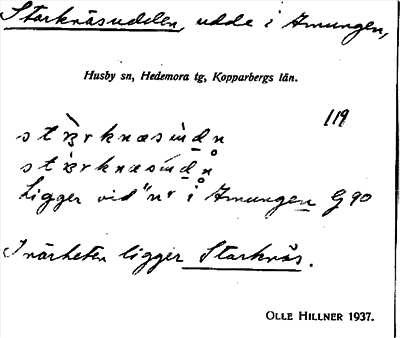 Starknäsudden, udde i Amungen,
Husby sn, Hedemora tg, Kopparbergs län.
119
Ligger vid "n" i Amungen G 90
I närheten ligger Starknäs.
OLLE HILLNER 1937.